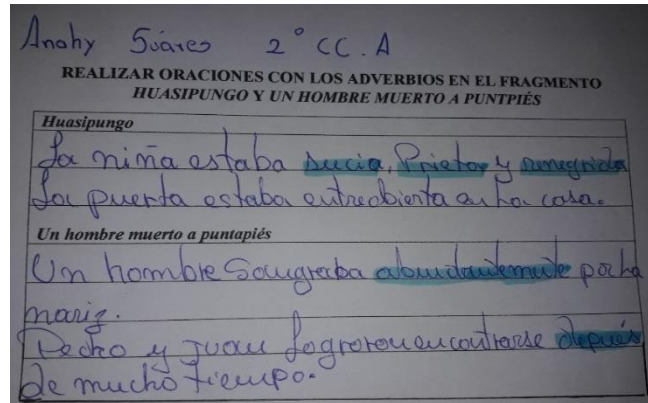 Anahy Suáres 2° CC. A
REALIZAR ORACIONES CON LOS ADVERBIOS EN EL FRAGMENTO
HUASIPUNGO Y UN HOMBRE MUERTO A PUNTPIÉS
Huasipungo
La niña estaba sucia, Prieta y renegrida
La puerta estaba entreabierta en la casa.
Un hombre muerto a puntapiés
Un hombre Sangraba abundantemente por la
nariz.
Pedro y Juan lograron encontrarse depués
de mucho tiempo.